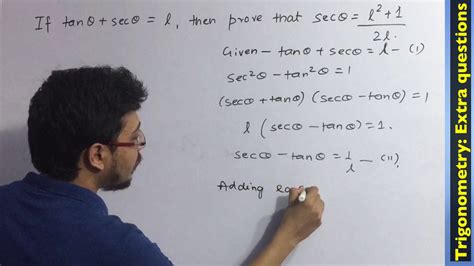 If tanθ + secθ = l, then prove that secθ = l² + 1 / 2l.
Given - tanθ + secθ = l - (i)
sec²θ - tan²θ = 1
(secθ + tanθ) (secθ - tanθ) = 1
l (secθ - tanθ) = 1.
secθ - tanθ = 1/l - (ii).
Adding
Trigonometry: Extra questions